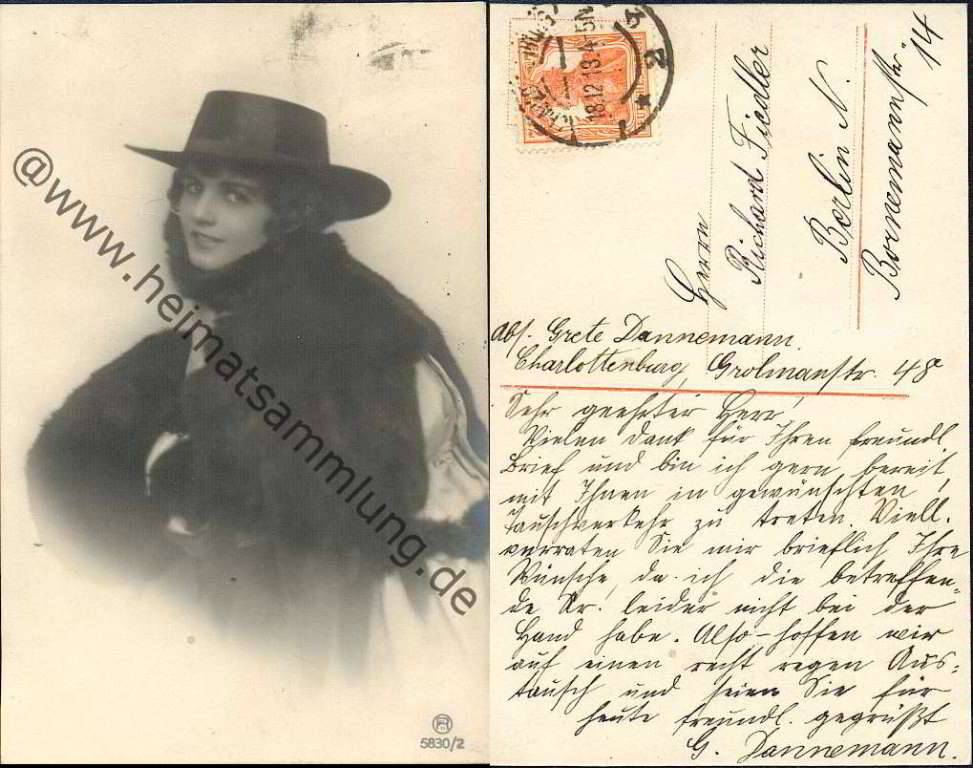 @www.heimatsammlung.de
5830/2
18.12.18.4-5N
Herrn
Richard Fiedler
Berlin N.
Bornemannstr. 14
Abs. Grete Dannemann.
Charlottenburg, Grolmanstr. 48
Sehr geehrter Herr!
Vielen Dank für Ihren freundl.
Brief und bin ich gern bereit,
mit Ihnen in gewünschten
Tauschverkehr zu treten. Viell.
verraten Sie mir brieflich Ihre
Wünsche, da ich die betreffen-
de Nr. leider nicht bei der
Hand habe. Also hoffen wir
auf einen recht regen Aus-
tausch und seien Sie für
heute freundl. gegrüßt
G. Dannemann.